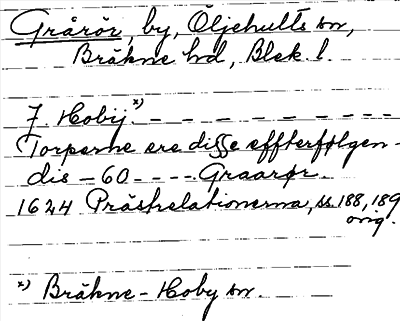 Grårör, by, Öljehults sn,
Bräkne hd, Blek. l.
J. Hobij.x) - - - - - - - - -
Torperne ere disse effterfølgen-
dis - 60 - - - - Graarør.
1624 Prästrelationerna, ss. 188, 189
orig.
x) Bräkne-Hoby sn.